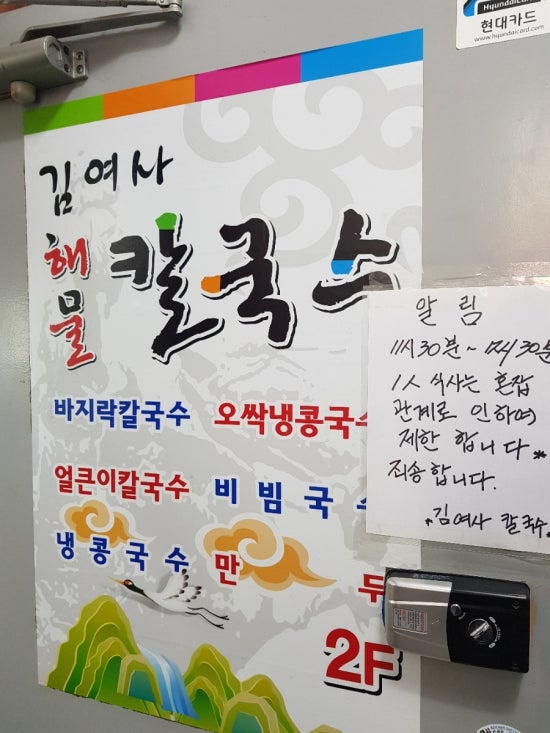 Hyundaicard
현대카드
www.hyundaicard.com
김여사
해물 칼국수
바지락칼국수 오싹냉콩국수
얼큰이칼국수 비빔국수
냉콩국수 만두
2F
알 림
11시30분~ 시30분
1人 식사는 혼잡
관계로 인하여
제한 합니다**
죄송합니다.
*김여사 칼국수*